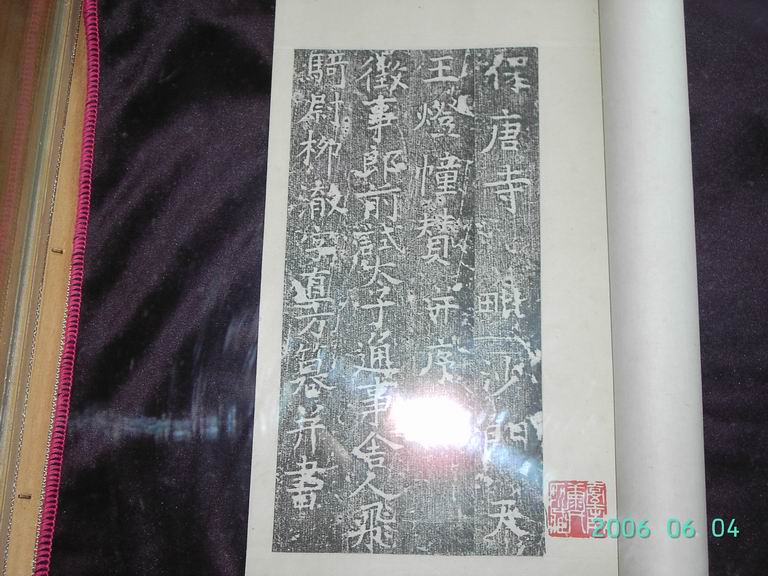 保唐寺毗沙門天
王燈幢贊并序
徵事郎前試太子通事舍人飛
騎尉柳澈字直方纂并書
2006 06 04